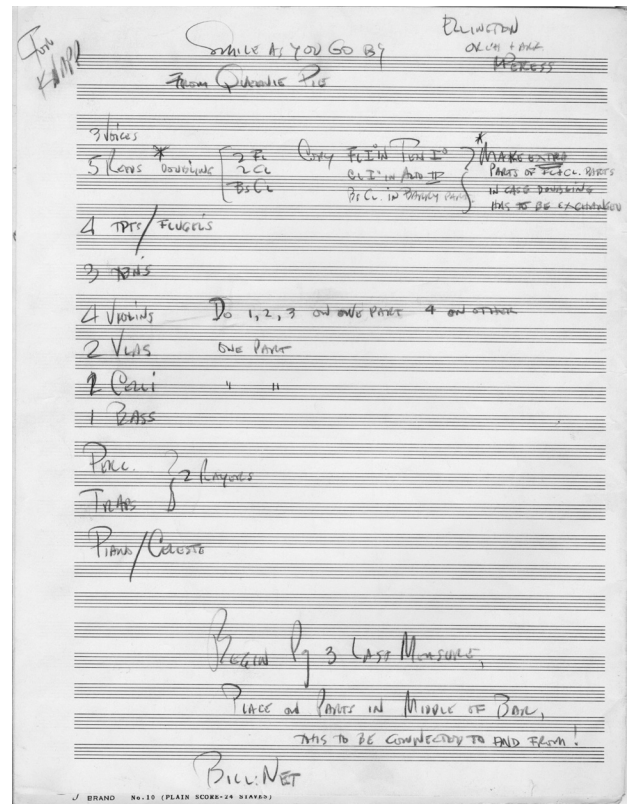 SMILE AS YOU GO BY
ELLINGTON
ORCH + ARR
M PERESS
FROM QUEENIE PIE
3 VOICES
5 REEDS * DOUBLING
2 FL
2 CL
BS CL
COPY FL I° IN TEN I°
CL I° IN ALTO II
BS CL. IN BARRY PART.
* MAKE EXTRA
PARTS OF FL & CL. PARTS
IN CASE DOUBLING
HAS TO BE EXCHANGED
4 TPTS / FLUGELS
3 TBNS
4 VIOLINS DO 1, 2, 3 ON ONE PART 4 ON OTHER
2 VLAS ONE PART
2 CELLI " "
1 BASS
PERC.
TRAPS
2 PLAYERS
PIANO / CELESTE
BEGIN Pg 3 LAST MEASURE,
PLACE ON PARTS IN MIDDLE OF BAR,
THIS TO BE CONNECTED TO AND FROM!
BILL: NET
BRAND No. 10 (PLAIN SCORE-24 STAVES)